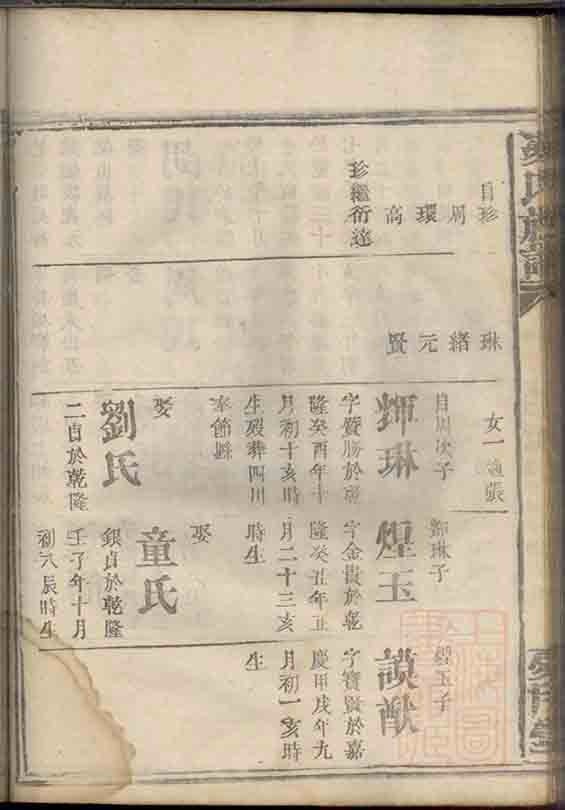 氏族譜
自珍
周
環
高
珍繼衍達
琳
緒
元
賢
女一適張
自周次子
輝琳
字賢勝於乾
隆癸酉年十
月初十亥時
生歿葬四川
奉節縣
娶
劉氏
二自於乾隆
輝琳子
煌玉
字金貴於乾
隆癸丑年五
月二十三亥
時生
娶
童氏
銀貞於乾隆
壬子年十月
初八辰時生
煌玉子
謨猷
字寶賢於嘉
慶甲戌年九
月初一亥時
生